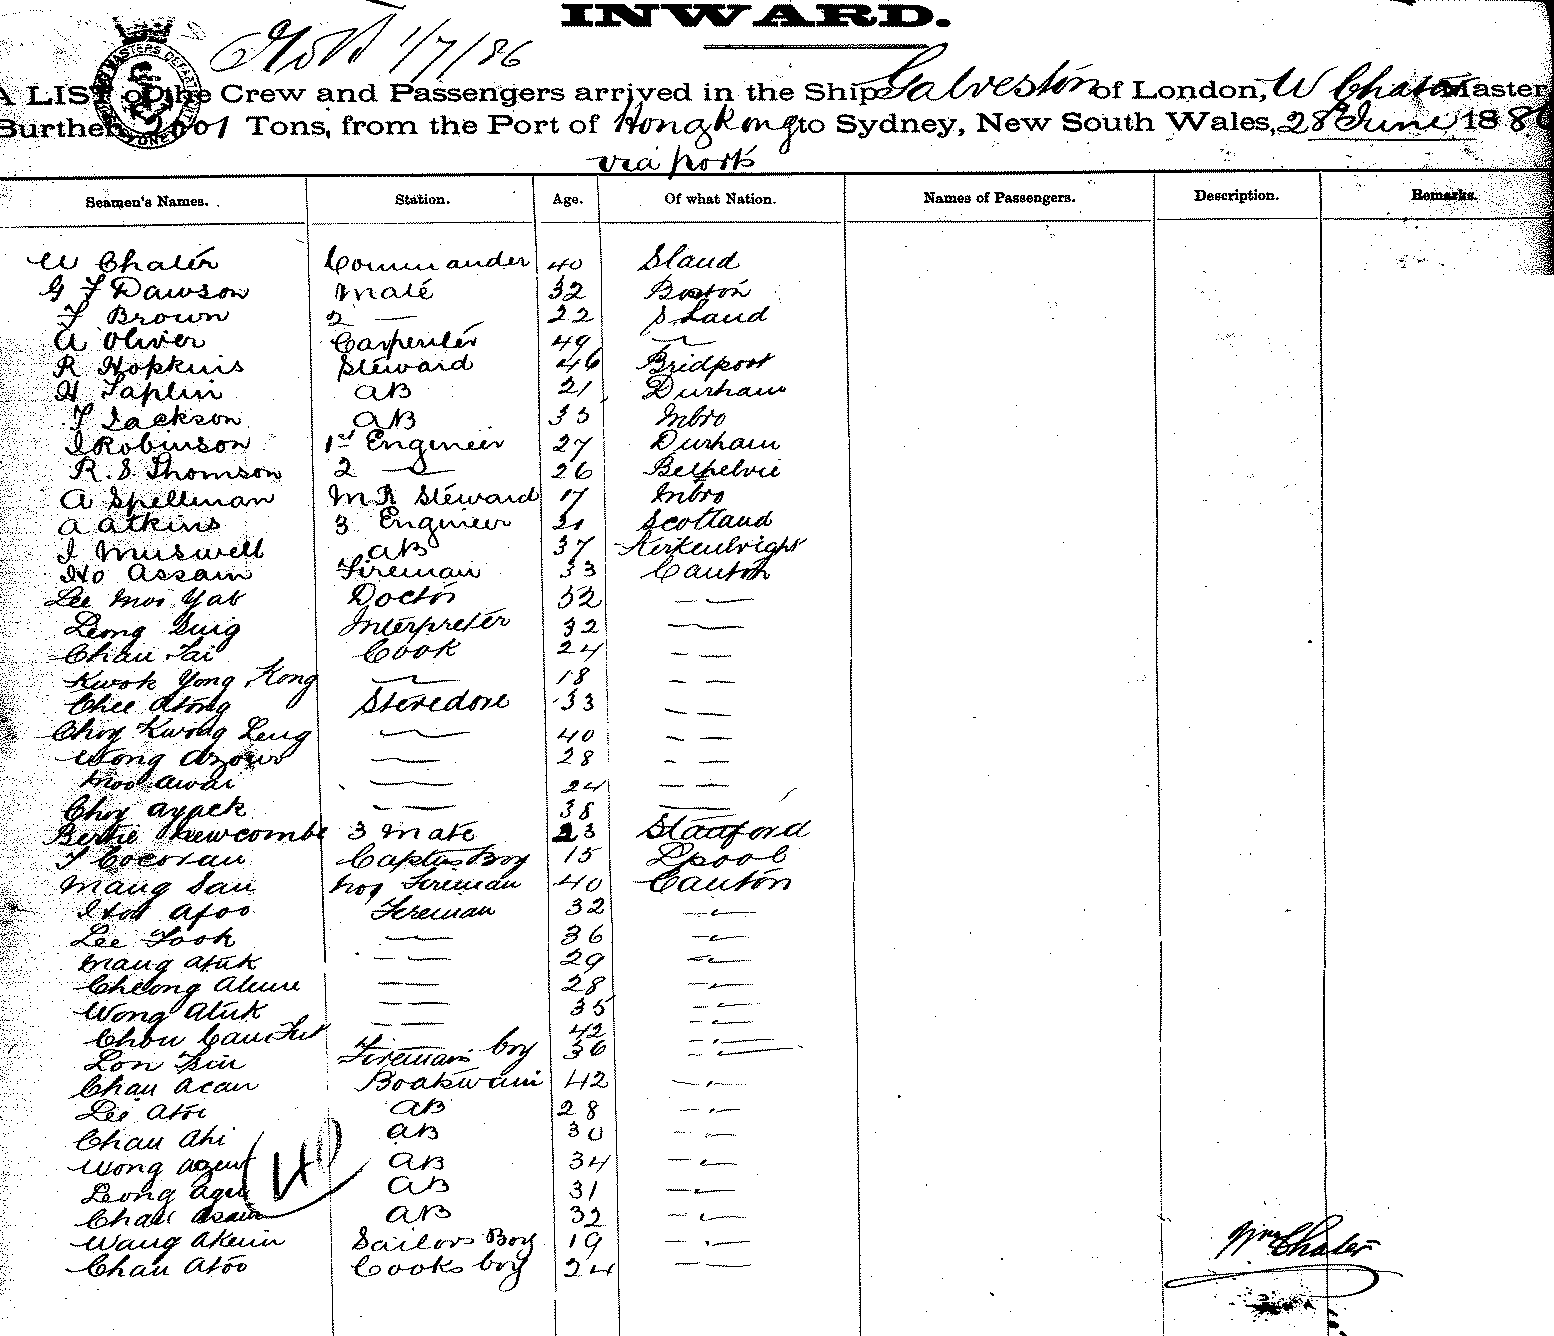 INWARD.
1/7/86
A LIST of the Crew and Passengers arrived in the Ship Galveston of London, W Chater Master,
Burthen 2001 Tons, from the Port of Hong Kong to Sydney, New South Wales, 28 June 1886
via ports
Seamen's Names. Station. Age. Of what Nation. Names of Passengers. Description. Remarks.
W Chater Commander 40 Sland
G F Dawson Mate 32 Boston
F Brown 2 — 22 S Land
A Oliver Carpenter 49 —
R Hopkins Steward 46 Bridport
H Taplin AB 21 Durham
T Jackson AB 33 Mbro
J Robinson 1st Engineer 27 Durham
R. S Thomson 2 — 26 Belhelvie
A Spellman M R Steward 17 Mbro
A Atkins 3 Engineer 21 Scotland
J Muswell AB 37 Kirkcubright
Ho Assam Fireman 33 Canton
Lee Moi Yab Doctor 52 — —
Leong Suig Interpreter 32 — —
Chau Tai Cook 24 — —
Kwok Yong Kong — 18 — —
Chee Atong Stevedore 33 — —
Choy Kwong Leng — 40 — —
Wong — 28 — —
Moo Awai — 24 — —
Choy Ayack — — 38 —
Bertie Newcombe 3 Mate 23 Stamford
T Cocoran Captns Boy 15 Lpool
Mang San No1 Fireman 40 Canton
Afoo Fireman 32 — " —
Lee Fook — 36 — " —
Mang Atuk — — 29 — " —
Cheong — — 28 — " —
Wong Atuk — — 35 — " —
Chou Cam Fut — — 42 — " —
Lon Tsin Firemans boy 36 — " —
Chau Acan Boatswain 42 — " —
Lei Atoi AB 28 — " —
Chau Ahi AB 30 — " —
Wong AB 34 — " —
Leong AB 31 — " —
Chau Asam AB 32 — " —
Wang Akum Sailors Boy 19 — " —
Chau Atoo Cooks boy 24 — " —
40
Wm Chater